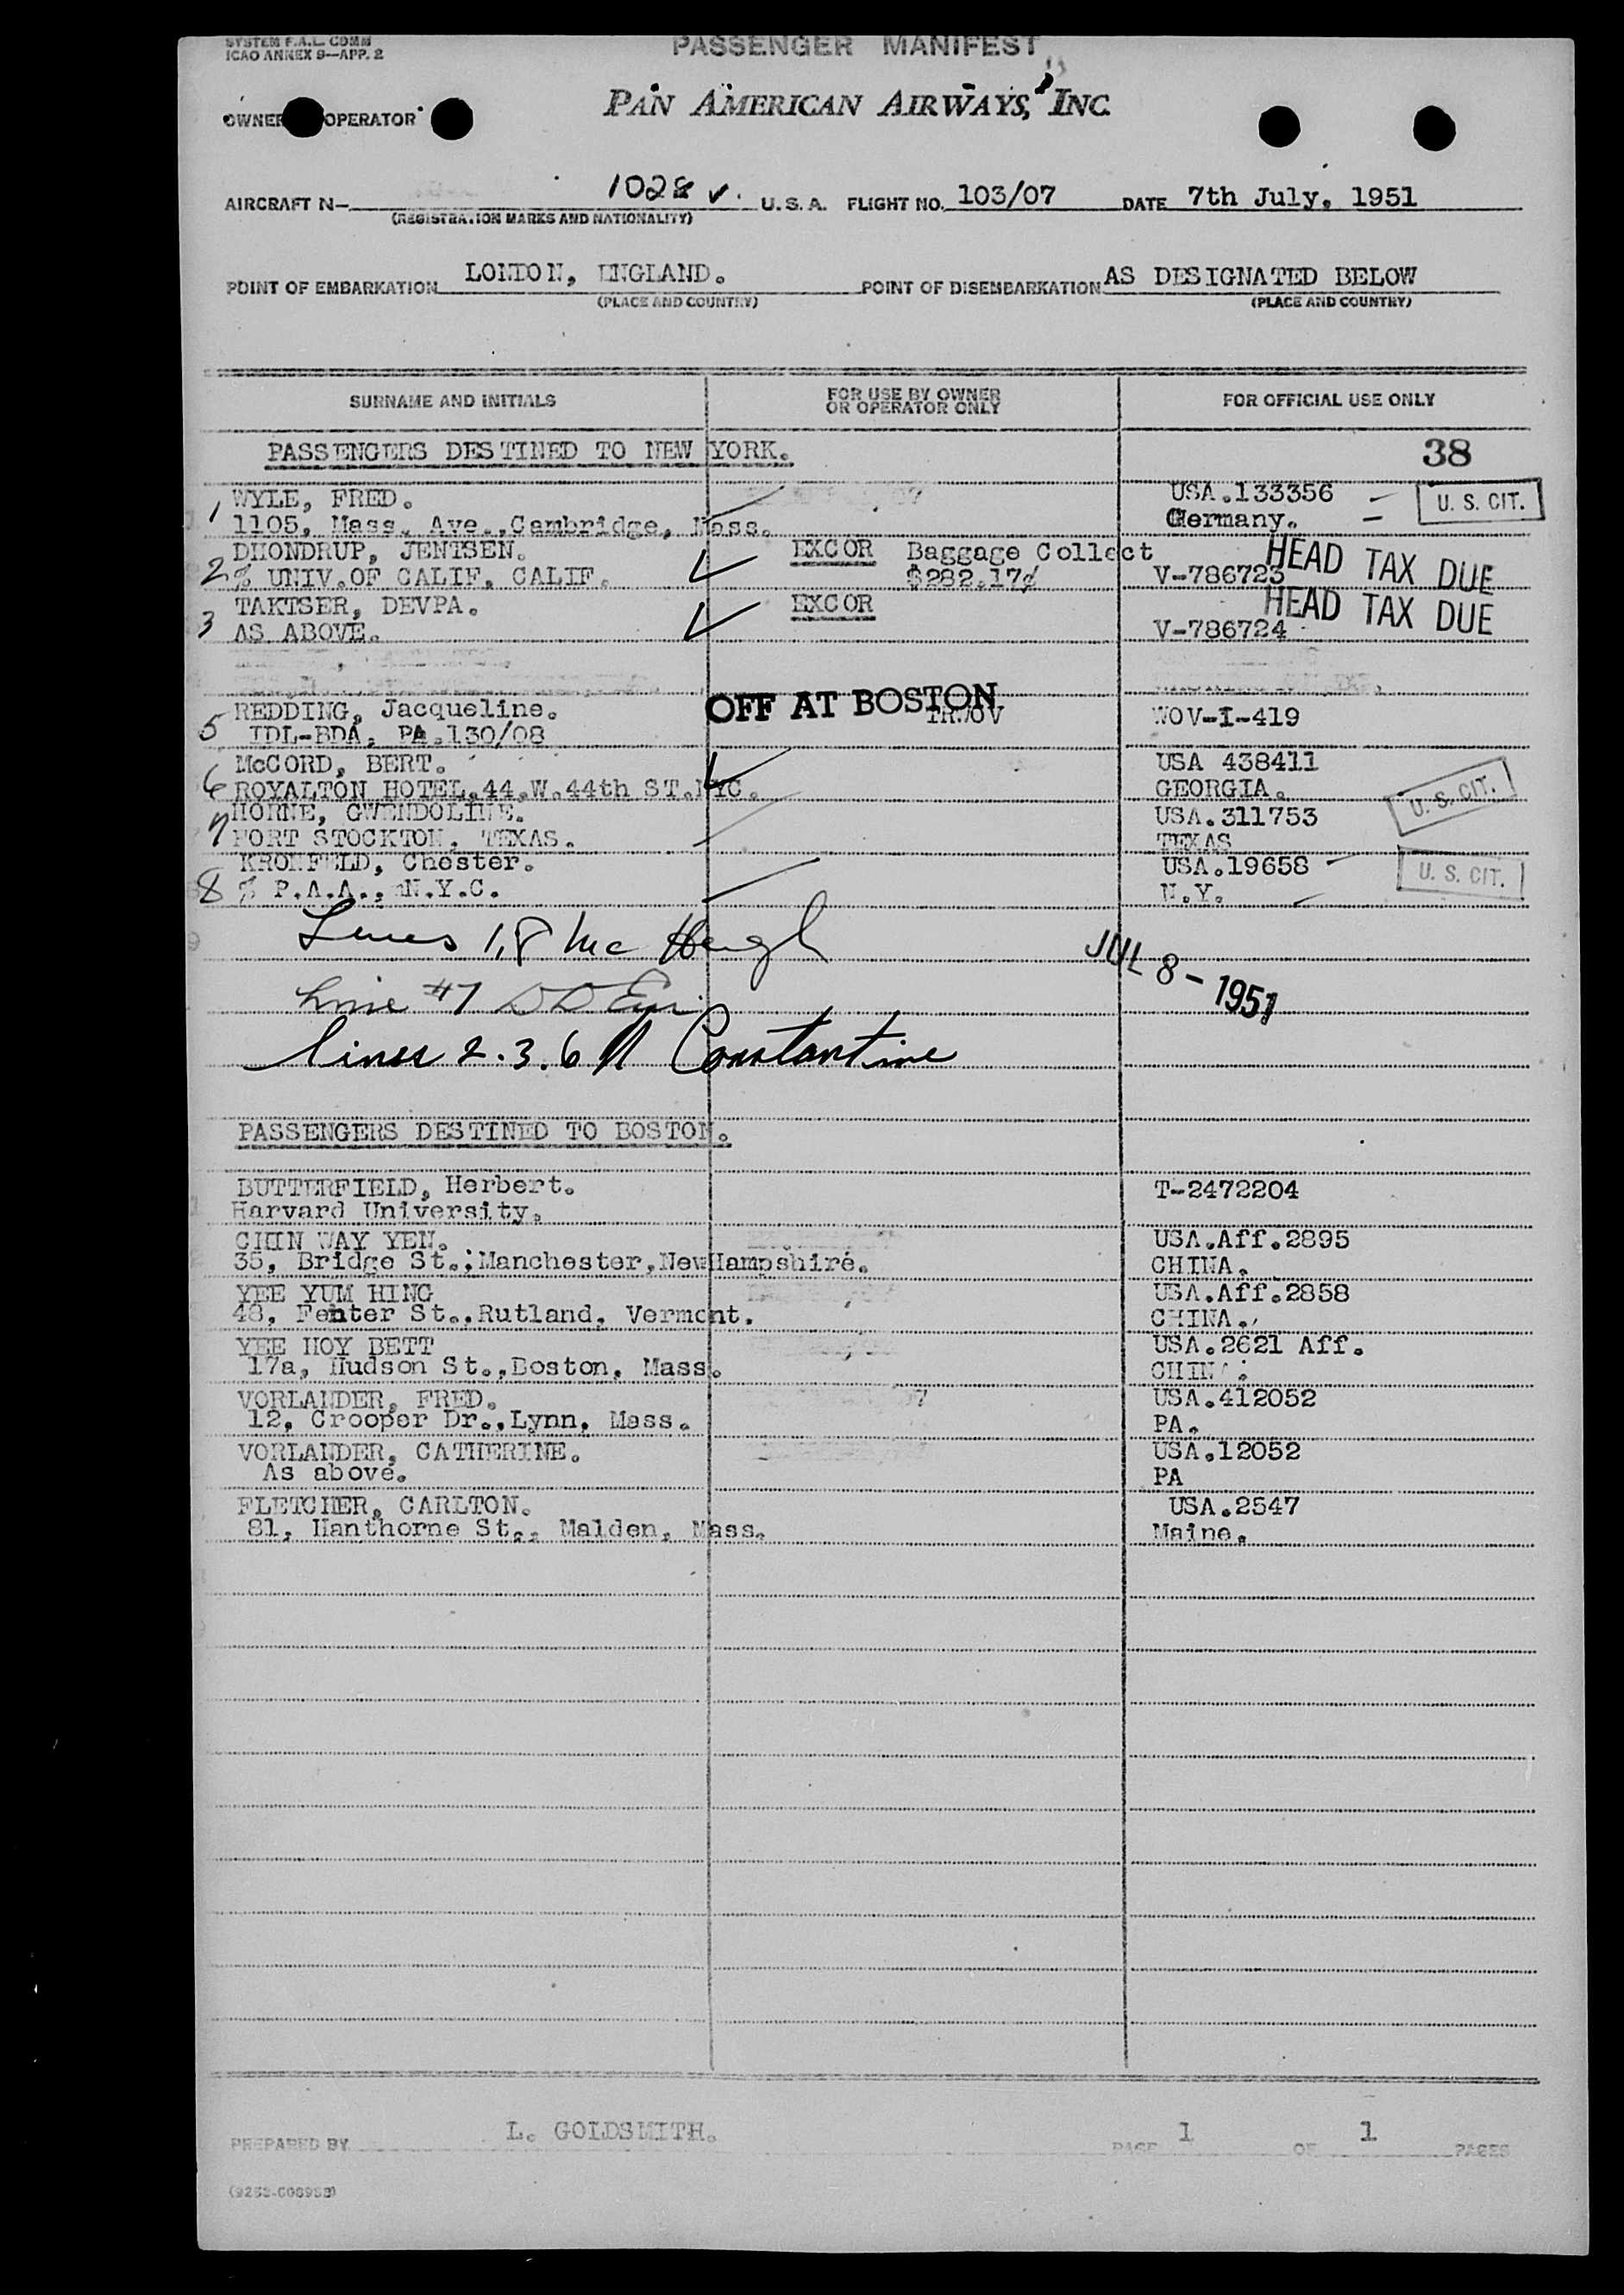 SYSTEM F.A.L. COMM
ICAO ANNEX 9—APP. 2
PASSENGER MANIFEST
OWNER OPERATOR
PAN AMERICAN AIRWAYS, INC.
AIRCRAFT N— 1028 U.S.A. FLIGHT NO. 103/07 DATE 7th July, 1951
(REGISTRATION MARKS AND NATIONALITY)
POINT OF EMBARKATION LONDON, ENGLAND. POINT OF DISEMBARKATION AS DESIGNATED BELOW
(PLACE AND COUNTRY) (PLACE AND COUNTRY)
SURNAME AND INITIALS FOR USE BY OWNER OR OPERATOR ONLY FOR OFFICIAL USE ONLY
PASSENGERS DESTINED TO NEW YORK. 38
1 WYLE, FRED. USA.133356 U. S. CIT.
1105, Mass. Ave.,Cambridge, Mass. Germany.
2 DHONDRUP, JENTSEN. EXCOR Baggage Collect HEAD TAX DUE
% UNIV.OF CALIF. CALIF. $282.17¢ V-786723
3 TAKTSER, DEVPA. EXCOR HEAD TAX DUE
AS ABOVE. V-786724
OFF AT BOSTON
5 REDDING, Jacqueline. TRWOV WOV-I-419
IDL-BDA, PA.130/08
6 McCORD, BERT. USA 438411
ROYALTON HOTEL.44.W.44th ST.NYC. GEORGIA. U. S. CIT.
7 HORNE, GWENDOLINE. USA.311753
FORT STOCKTON, TEXAS. TEXAS
8 KRONFELD, Chester. USA.19658 U. S. CIT.
% P.A.A., N.Y.C. N.Y.
Lines 1,8 Mc Hugh
JUL 8 - 1951
Line #7
lines 2.3.6 Constantine
PASSENGERS DESTINED TO BOSTON.
BUTTERFIELD, Herbert. T-2472204
Harvard University.
CHIN WAY YEN. USA.Aff.2895
35, Bridge St.,Manchester,NewHampshire. CHINA.
YEE YUM HING USA.Aff.2858
48, Fenter St.,Rutland, Vermont. CHINA.
YEE HOY BETT USA.2621 Aff.
17a, Hudson St.,Boston, Mass. CHINA.
VORLANDER, FRED. USA.412052
12, Crooper Dr.,Lynn, Mass. PA.
VORLANDER, CATHERINE. USA.12052
As above. PA
FLETCHER, CARLTON. USA.2547
81, Hanthorne St., Malden, Mass. Maine.
PREPARED BY L. GOLDSMITH. PAGE 1 OF 1 PAGES